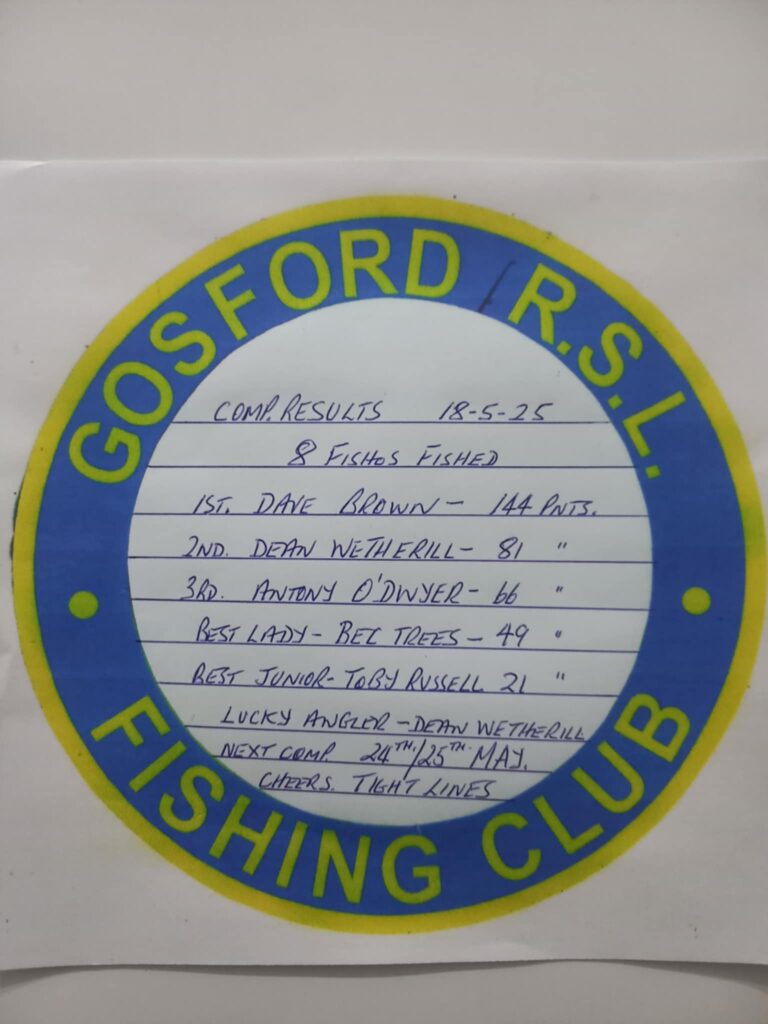 GOSFORD R.S.L.
COMP. RESULTS 18-5-25
8 FISHOS FISHED
1ST. DAVE BROWN - 144 PNTS.
2ND. DEAN WETHERILL - 81 "
3RD. ANTONY O'DWYER - 66 "
BEST LADY - BEC TREES - 49 "
BEST JUNIOR - TOBY RUSSELL 21 "
LUCKY ANGLER - DEAN WETHERILL
NEXT COMP. 24TH./25TH. MAY.
CHEERS. TIGHT LINES
FISHING CLUB